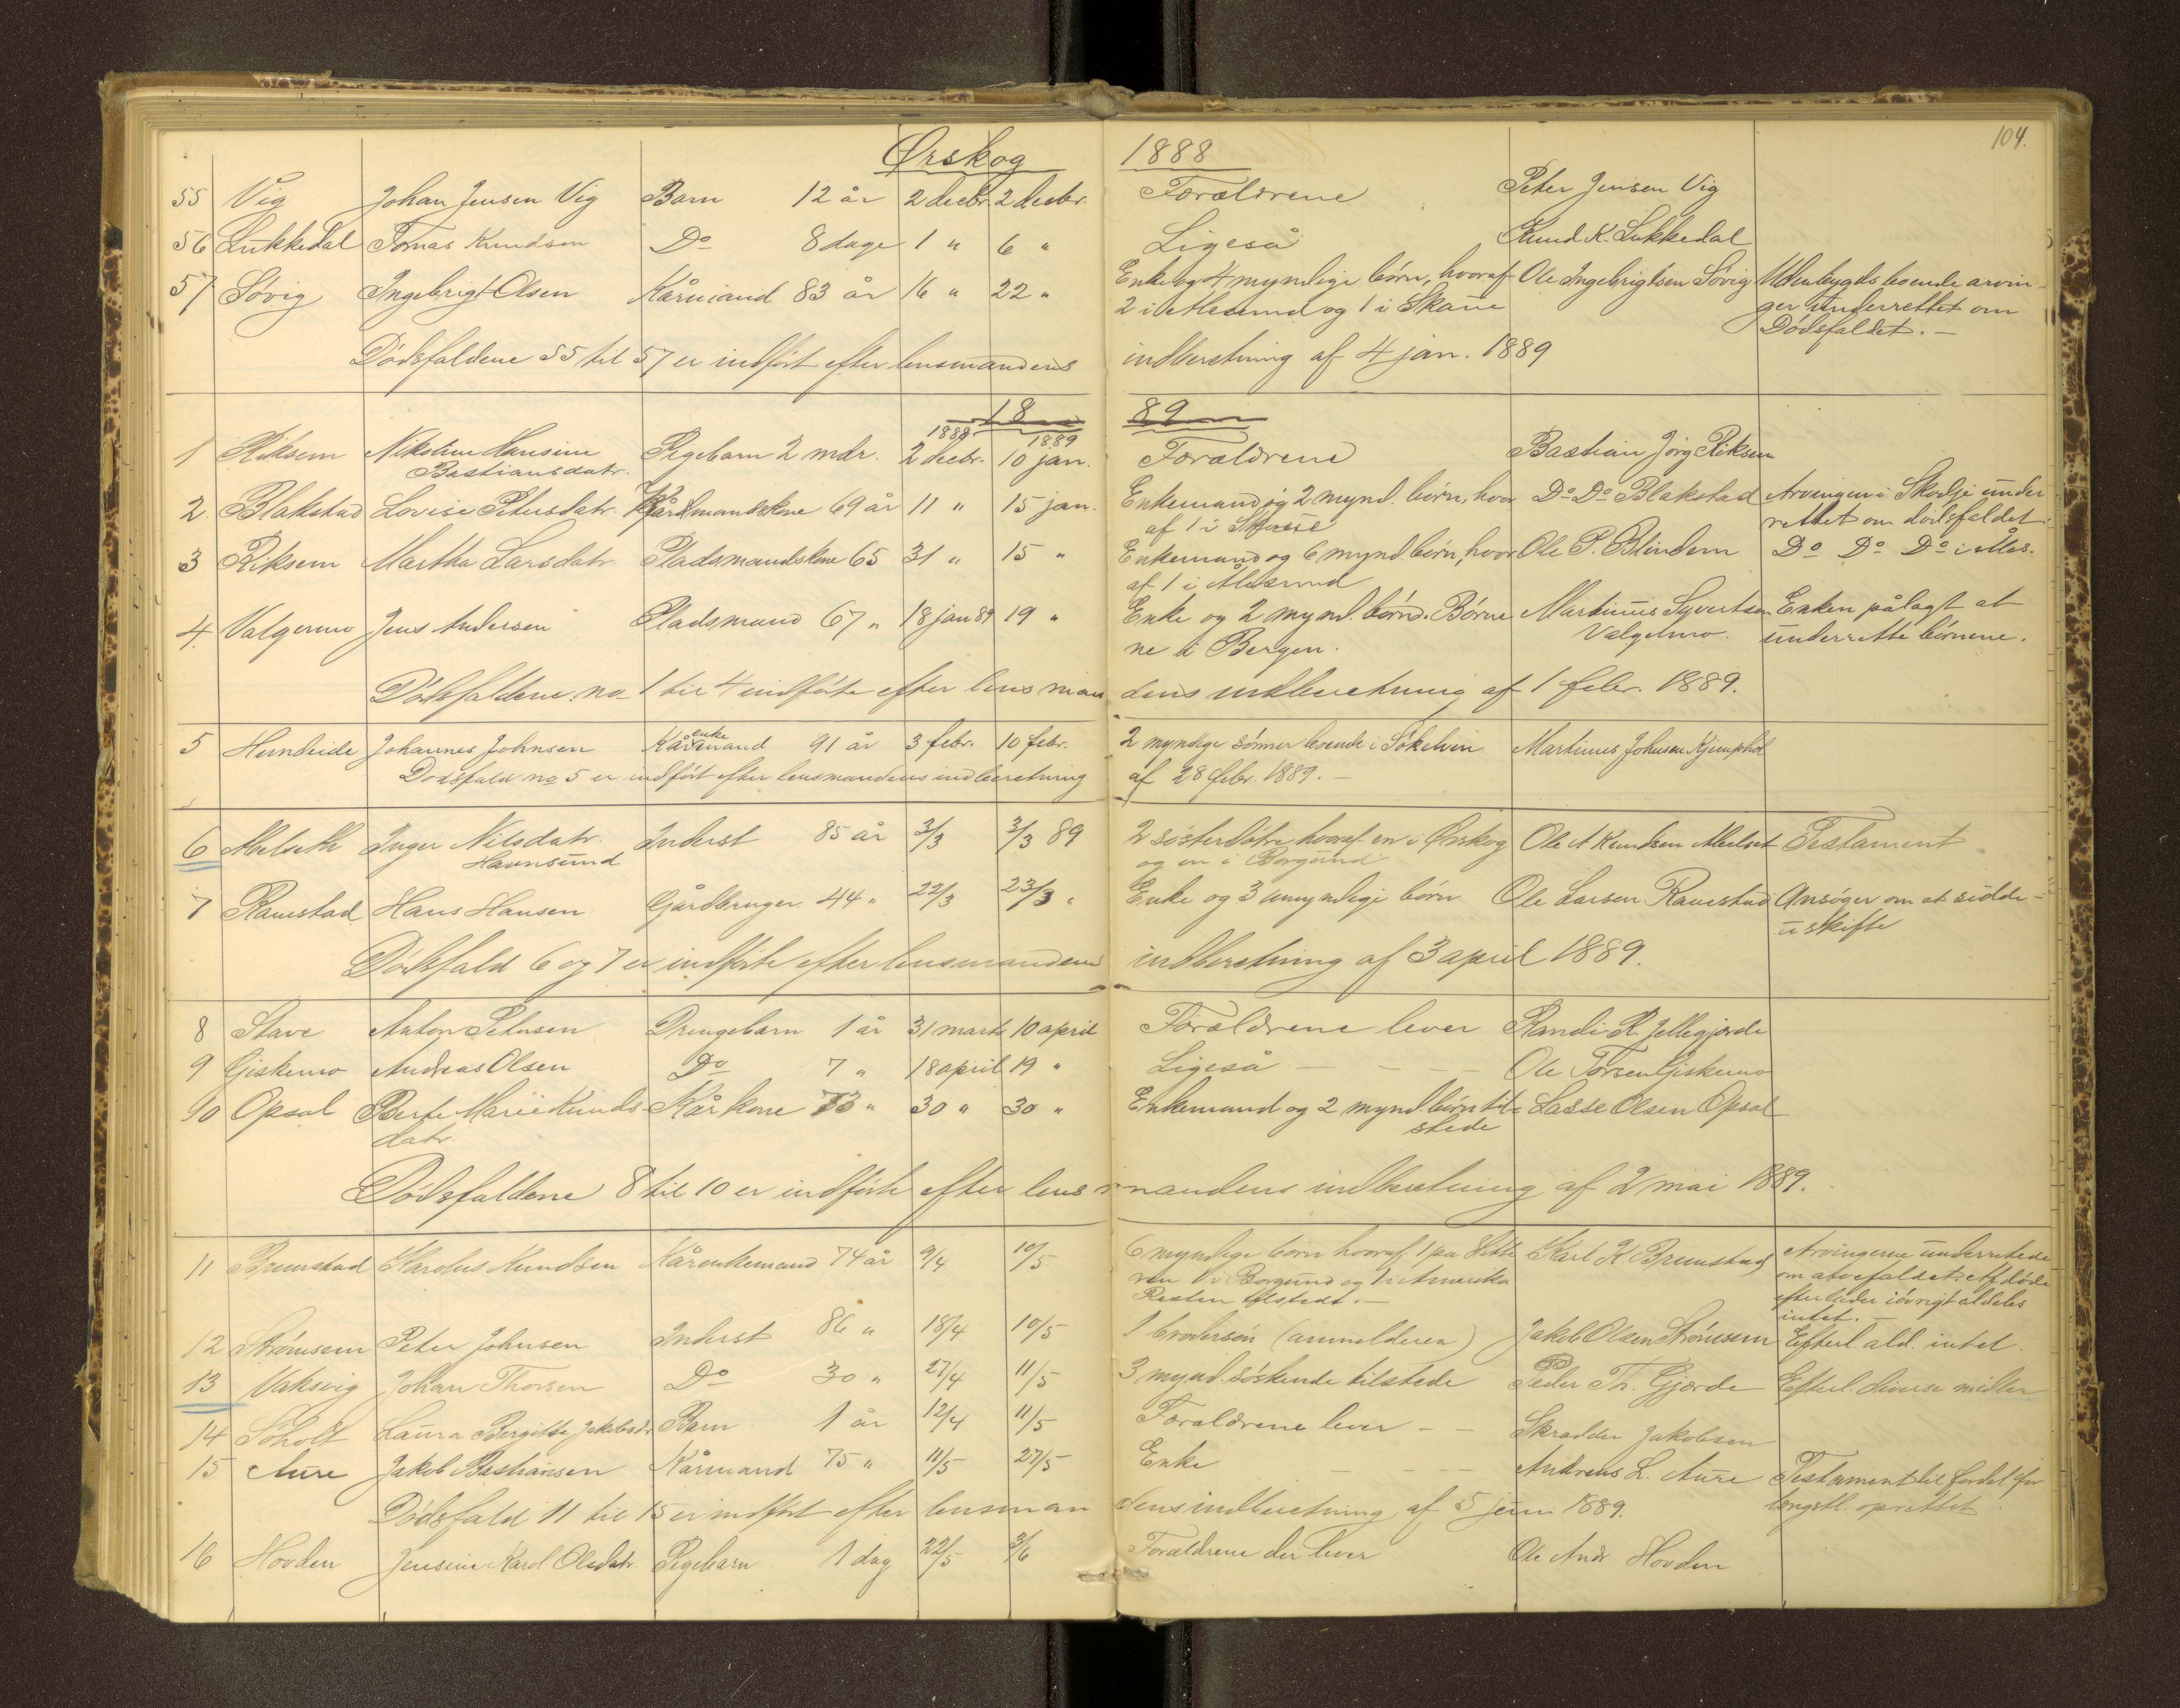 104.
Ørskog 1888
55 Vig Johan Jensen Vig Barn 12 år 2 decbr. 2 decbr. Forældrene Peter Jensen Vig
56 Lukkedal Tomas Knudsen Do 8 dage 1 " 6 " Ligeså Knud K. Lukkedal
57 Søvig Ingebrigt Olsen Kårmand 83 år 16 " 22 " Enke og 4 myndige børn, hvoraf Ole Ingebrigtsen Søvig Udenbygds boende arvin-
2 i Ålesund og 1 i Skaue ger underrettet om
Dødsfaldet. -
Dødsfaldene 55 til 57 er indført efter lensmandens indberetning af 4 jan. 1889
18 89
1888 1889
1 Riksem Nikoline Hansine Pigebarn 2 mdr. 2 decbr. 10 jan. Forældrene Bastian Jørg. Riksem
Bastiansdatr.
2. Blakstad Lovise Petersdatr. Gårdmandskone 69 år 11 " 15 jan. Enkemand og 2 mynd. børn, hvor Do Do Blakstad Arvingen i Skodje under
af 1 i rettet om dødsfaldet.
3 Riksem Martha Larsdatr. Pladsmandskone 65 31 " 15 " Enkemand og 6 mynd. børn, hvor Ole P. Blindem Do Do Do i Ales.
af 1 i Ålesund
4. Valgermo Jens Andersen Pladsmand 67 " 18 jan 89 19 " Enke og 2 mynd. børn. Børne Martinus Syvertsen Enken pålagt at
ne i Bergen. Valgermo. underrette børnene.
Dødsfaldene no 1 til 4 indførte efter lensmandens indberetning af 1 febr. 1889.
5 Hundeide Johannes Johnsen Kårenkemand 91 år 3 febr. 10 febr. 2 myndige sønner boende i Søkelven Martinus Johnsen
Dødsfald no 5 er indført efter lensmandens indberetning af 28 febr. 1889. -
6 Abelseth Inger Nilsdatr. Inderst 85 år 3/3 89 2 søsterdøtre hvoraf en i Ørskog Ole A Knudsen Abelset Testament
Havnsund og en i Borgund
7 Ramstad Hans Hansen Gårdbruger 44 " 22/3 23/3 " Enke og 3 umyndige børn Ole Larsen Ramstad Ansøger om at sidde i
uskifte
Dødsfald 6 og 7 er indførte efter lensmandens indberetning af 3 april 1889.
8 Stave Anton Petersen Drengebarn 1 år 31 marts 10 april Forældrene lever Randi R. Jellegjerde
9 Giskemo Andreas Olsen Do 7 " 18 april 19 " Ligeså - - - - Ole Torsen Giskemo
10 Opsal Berte Marie Knuds Kårkone 73 " 30 " 30 " Enkemand og 2 mynd. børn til Lasse Olsen Opsal
datr. stede
Dødsfaldene 8 til 10 er indførte efter lensmandens indberetning af 2 mai 1889.
11 Brunstad Karolus Knudsen Kårenkemand 74 år 9/4 10/5 6 myndige børn hvoraf 1 på Hitte Karl K Brunstad Arvingerne underrettede
ren 1 i Borgund og 1 i Amerika om dødsfaldet. Afdøde
Resten tilstede. - efterlader iøvrigt aldeles
intet. -
12 Strømsem Peter Johnsen Inderst 86 " 18/4 10/5 1 brodersøn (anmelderen) Jakob Olsen Strømsem Efterl. ald. intet.
13 Vaksvig Johan Thorsen Do 30 " 27/4 11/5 3 mynd. søskende tilstede Peder Th. Gjærde Efterl. diverse midler
14 Søholt Laura Bergitte Jakobsdr. Barn 1 år 12/4 11/5 Forældrene lever - - Skrædder Jakobsen
15 Aure Jakob Bastiansen Kårmand 75 " 11/5 27/5 Enke - - - Andreas L. Aure Testament til fordel for
længstl. oprettet.
Dødsfald 11 til 15 er indført efter lensmandens indberetning af 5 juni 1889.
16 Hovden Jensine Karol. Olsdatr. Pigebarn 1 dag 22/5 3/6 Forældrene der lever Ole Andr. Hovden